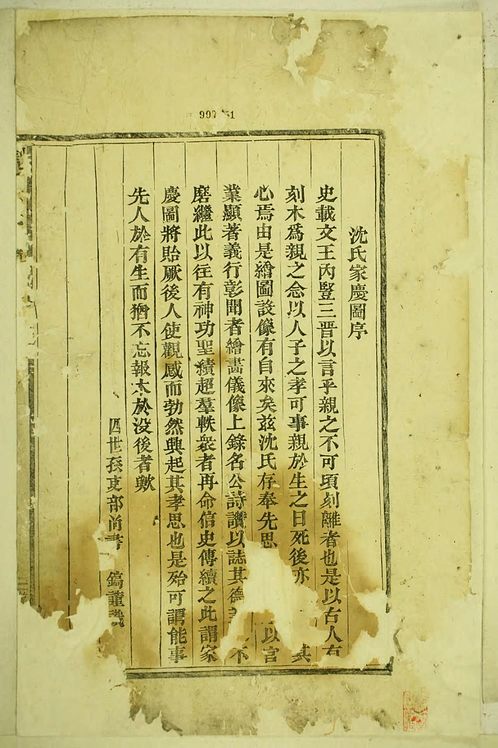 沈氏家慶圖序
史載文王內豎三晉以言乎親之不可頃刻離者也是以古人有
刻木爲親之念以人子之孝可事親於生之日死後亦 其
心焉由是繪圖設像有自來矣茲沈氏存奉先思 以言
業顯著義行彰聞者繪畵儀像上錄名公詩讚以誌其德 不
磨繼此以往有神功聖績超羣軼衆者再命信史傳續之此謂家
慶圖將貽厥後人使觀感而勃然興起其孝思也是殆可謂能事
先人於有生而猶不忘報本於没後者歟
四世孫吏部尚書 鎬董識